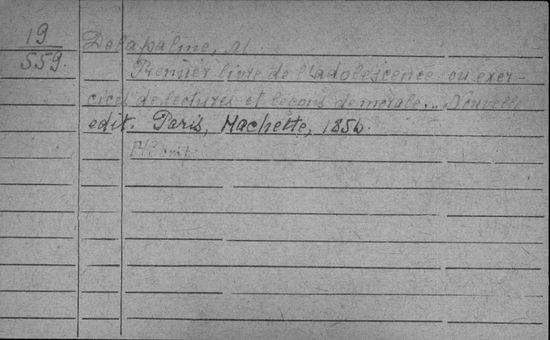 19
559.
Delapalme, M.
Premier livre de l'adolescence ou exer-
cices de lectures et leçons de morale... Nouvelle
edit. Paris, Hachette, 1856.